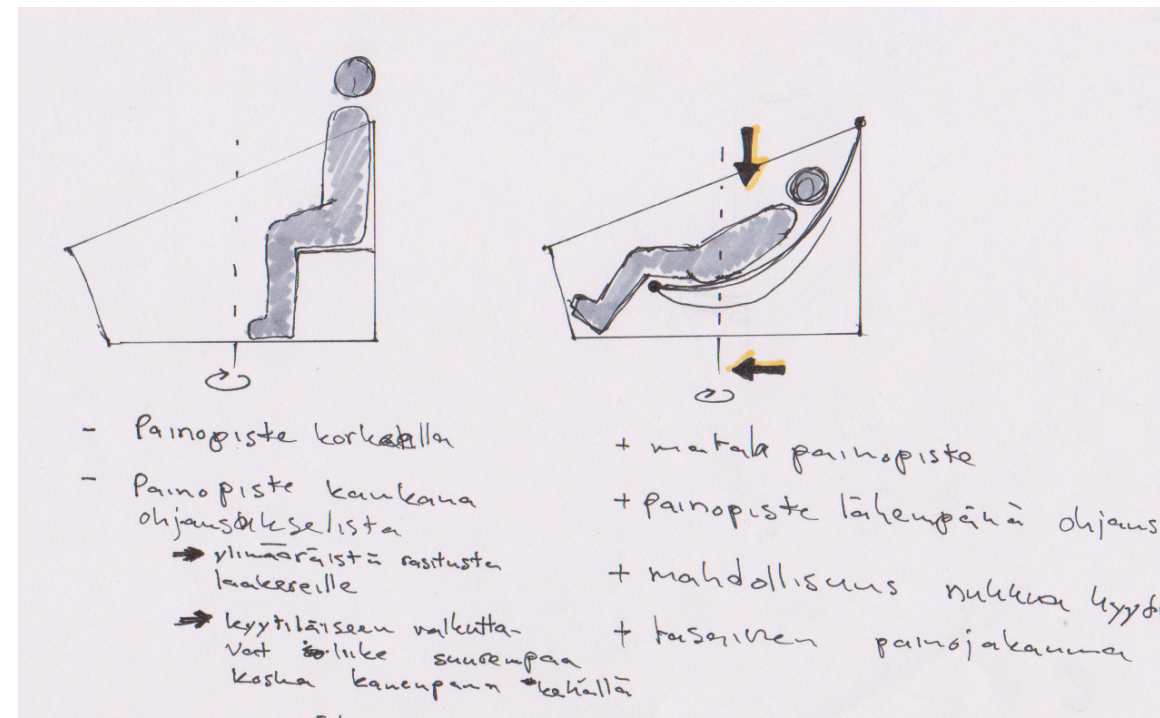 - Painopiste korkealla
- Painopiste kaukana
ohjausakselista
→ ylimääräistä rasitusta
laakereille
→ kyytiläiseen vaikutta-
vat liike suurempaa
koska kauempana kehällä
+ matala painopiste
+ painopiste lähempänä ohjaus
+ mahdollisuus nukkua kyyd
+ tasainen painojakauma